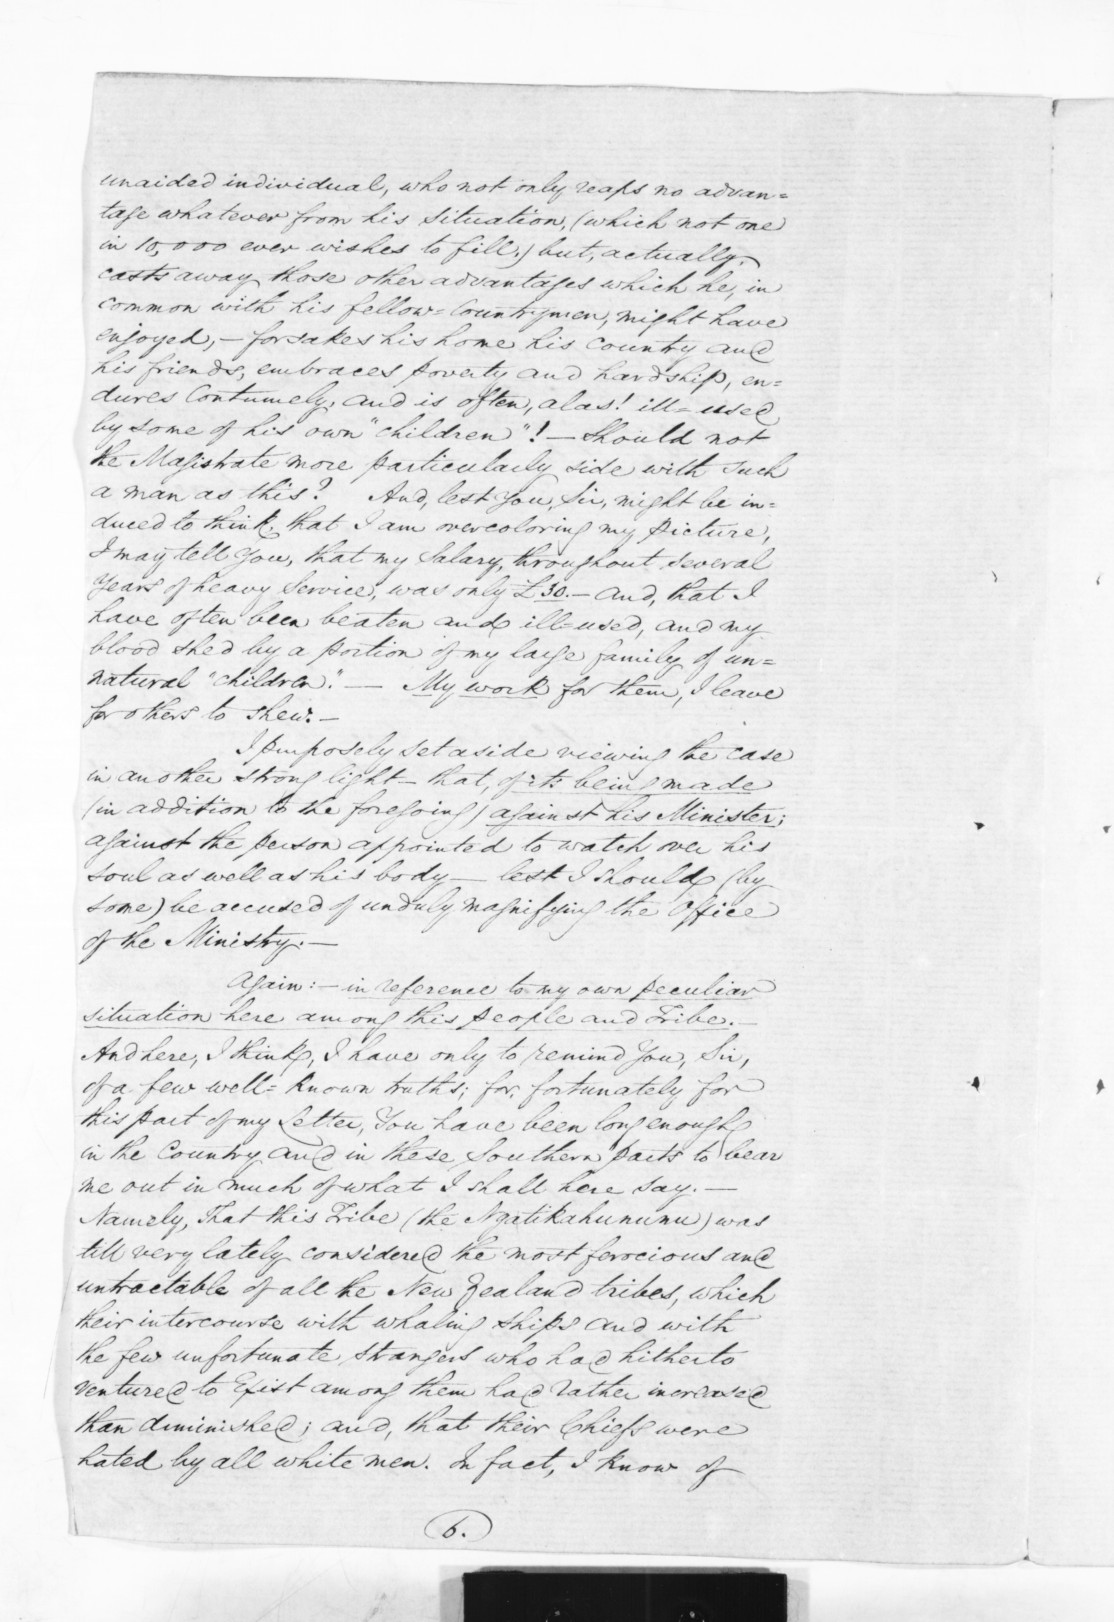 unaided individual, who not only reaps no advan=
tage whatever from his situation, (which not one
in 10,000 ever wishes to fill,) but, actually,
casts away those other advantages which he, in
common with his fellow=Countrymen, might have
enjoyed, — forsakes his home his Country and
his friends, embraces poverty and hardship, en=
dures Contumely, and is often, alas! ill=used
by some of his own "children"! — Should not
the Magistrate more particularly side with such
a man as this? And, lest You, Sir, might be in=
duced to think, that I am overcoloring my picture,
I may tell You, that my Salary, throughout several
Years of heavy Service, was only £30. — and, that I
have often been beaten and ill=used, and my
blood shed by a portion of my large family of un=
natural "children." — My work for them, I leave
for others to shew. —
I purposely set aside viewing the case
in another strong light — that, of its being made
(in addition to the foregoing) against his Minister;
against the person appointed to watch over his
soul as well as his body — lest I should (by
some) be accused of unduly magnifying the Office
of the Ministry. —
Again: — in reference to my own peculiar
situation here among this people and Tribe. —
And here, I think, I have only to remind You, Sir,
of a few well=known truths; for, fortunately for
this part of my Letter, You have been long enough
in the Country and in these Southern parts to bear
me out in much of what I shall here say. —
Namely, That this Tribe (the Ngatikahununu) was
till very lately considered the most ferocious and
untractable of all the New Zealand tribes, which
their intercourse with whaling ships and with
the few unfortunate strangers who had hitherto
ventured to Exist among them had rather increased
than diminished; and, that their Chiefs were
hated by all white men. In fact, I know of
6.